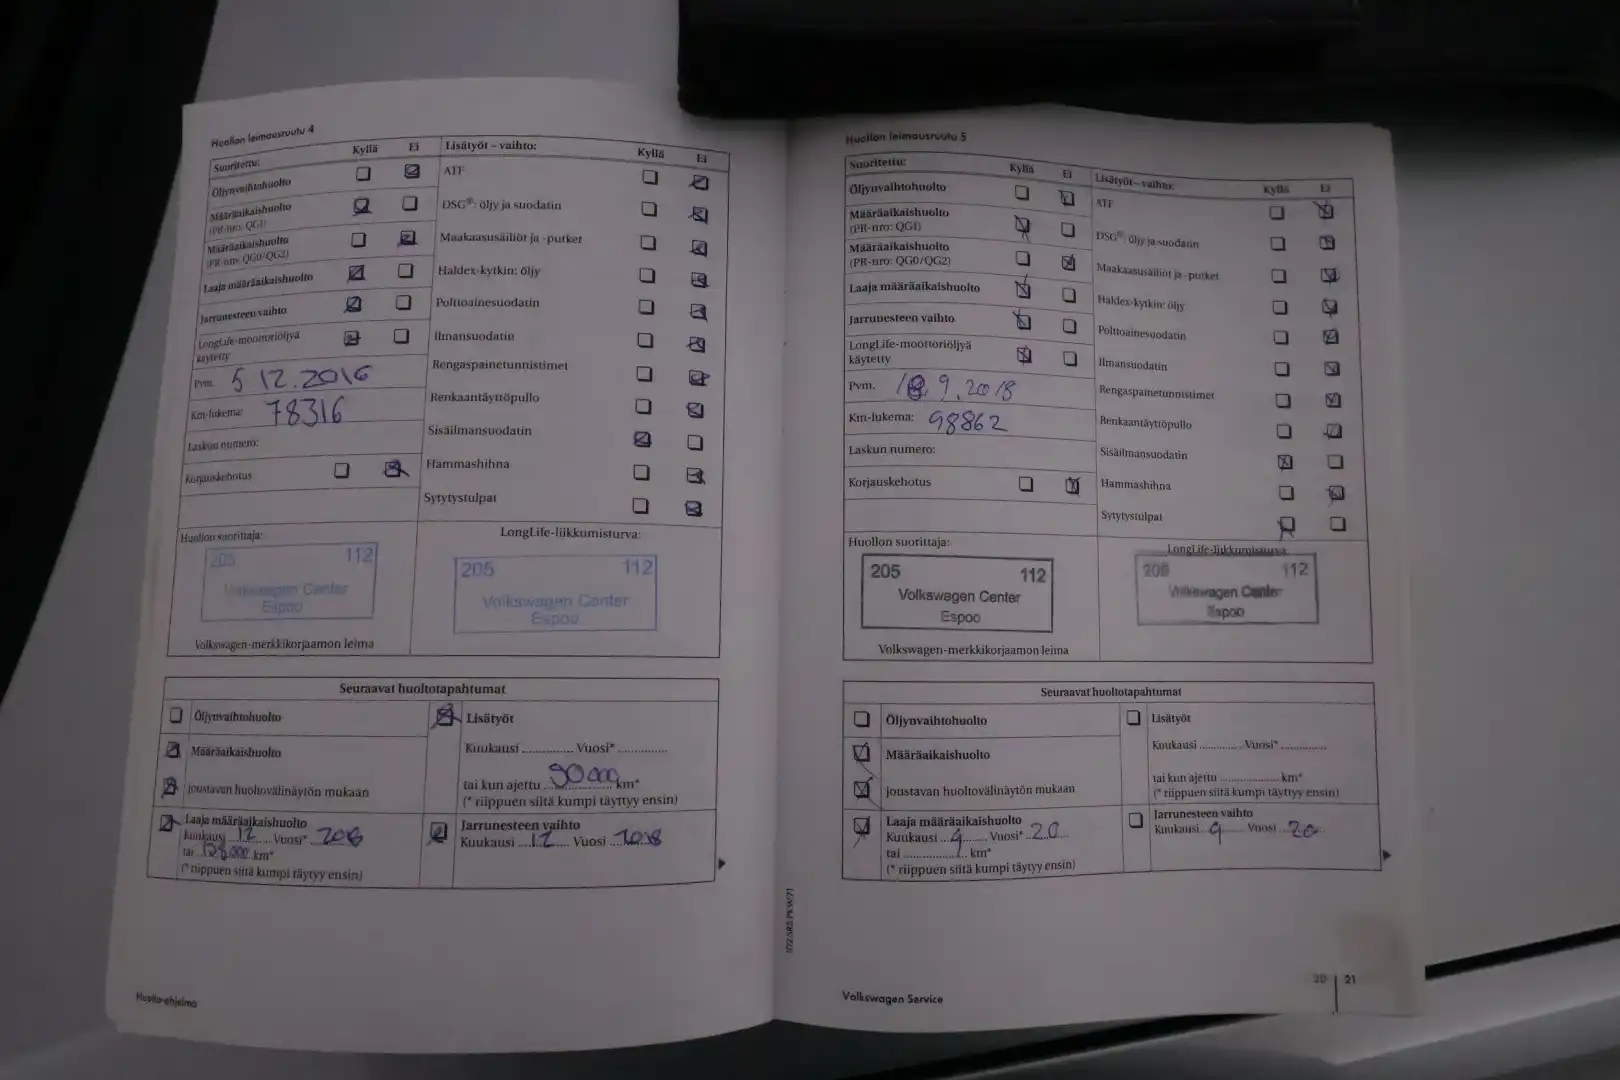 Huollon leimausruutu 4
Suoritettu: Kyllä Ei
Öljynvaihtohuolto
Määräaikaishuolto
(PR-nro: QG1)
Määräaikaishuolto
(PR-nro: QG0/QG2)
Laaja määräaikaishuolto
Jarrunesteen vaihto
LongLife-moottoriöljyä
käytetty
Pvm. 5 12.2016
Km-lukema: 78316
Laskun numero:
Korjauskehotus
Lisätyöt – vaihto: Kyllä Ei
ATF
DSG®: öljy ja suodatin
Maakaasusäiliöt ja -putket
Haldex-kytkin: öljy
Polttoainesuodatin
Ilmansuodatin
Rengaspainetunnistimet
Renkaantäyttöpullo
Sisäilmansuodatin
Hammashihna
Sytytystulpat
Huollon suorittaja:
205 112
Volkswagen Center
Espoo
Volkswagen-merkkikorjaamon leima
LongLife-liikkumisturva:
205 112
Volkswagen Center
Espoo
Seuraavat huoltotapahtumat
Öljynvaihtohuolto
Määräaikaishuolto
joustavan huoltovälinäytön mukaan
Laaja määräaikaishuolto
Kuukausi 12 Vuosi* 2018
tai km*
(* riippuen siitä kumpi täytyy ensin)
Lisätyöt
Kuukausi .............. Vuosi* ..............
tai kun ajettu 90000 km*
(* riippuen siitä kumpi täyttyy ensin)
Jarrunesteen vaihto
Kuukausi 12 Vuosi 2018
Huolto-ohjelma
Huollon leimausruutu 5
Suoritettu: Kyllä Ei
Öljynvaihtohuolto
Määräaikaishuolto
(PR-nro: QG1)
Määräaikaishuolto
(PR-nro: QG0/QG2)
Laaja määräaikaishuolto
Jarrunesteen vaihto
LongLife-moottoriöljyä
käytetty
Pvm. 18 9.2018
Km-lukema: 98862
Laskun numero:
Korjauskehotus
Lisätyöt – vaihto: Kyllä Ei
ATF
DSG®: öljy ja suodatin
Maakaasusäiliöt ja -putket
Haldex-kytkin: öljy
Polttoainesuodatin
Ilmansuodatin
Rengaspainetunnistimet
Renkaantäyttöpullo
Sisäilmansuodatin
Hammashihna
Sytytystulpat
Huollon suorittaja:
205 112
Volkswagen Center
Espoo
Volkswagen-merkkikorjaamon leima
LongLife-liikkumisturva:
205 112
Volkswagen Center
Espoo
Seuraavat huoltotapahtumat
Öljynvaihtohuolto
Määräaikaishuolto
joustavan huoltovälinäytön mukaan
Laaja määräaikaishuolto
Kuukausi 9 Vuosi* 20
tai .................. km*
(* riippuen siitä kumpi täytyy ensin)
Lisätyöt
Kuukausi .............. Vuosi* ..............
tai kun ajettu .................. km*
(* riippuen siitä kumpi täyttyy ensin)
Jarrunesteen vaihto
Kuukausi 9 Vuosi 20
Volkswagen Service
20 21